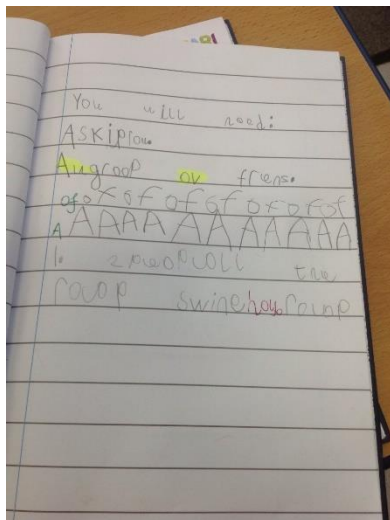 You will need:
ASKiPlou.
An groop ov friens.
ofo of of of of of of of of
A AAAA AA AAAAA
1. 2 pieopl Oll the
roop swine hou rounp